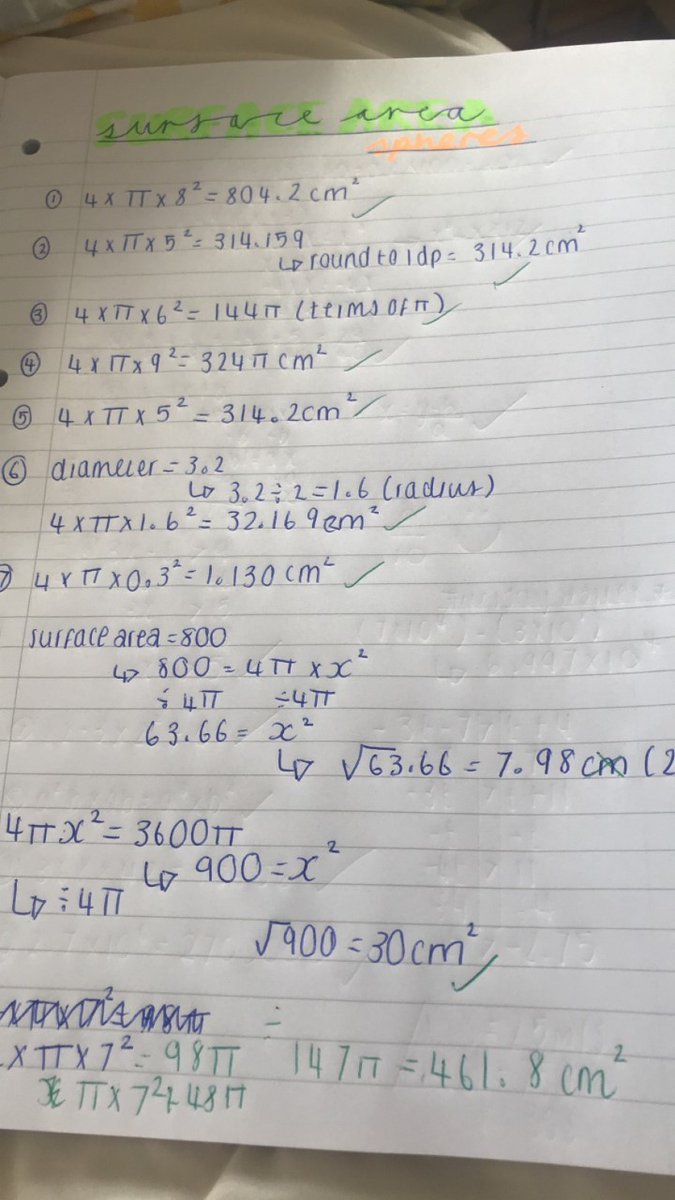 surface area
spheres
① 4 × π × 8² = 804.2 cm² ✓
② 4 × π × 5² = 314.159
↳ round to 1dp = 314.2 cm² ✓
③ 4 × π × 6² = 144π (terms of π) ✓
④ 4 × π × 9² = 324π cm² ✓
⑤ 4 × π × 5² = 314.2cm² ✓
⑥ diameter = 3.2
↳ 3.2 ÷ 2 = 1.6 (radius)
4 × π × 1.6² = 32.169cm² ✓
7 4 × π × 0.3² = 1.130 cm² ✓
surface area = 800
↳ 800 = 4π × x²
÷ 4π ÷4π
63.66 = x²
↳ √63.66 = 7.98 cm (2
4πx² = 3600π
↳ 900 = x²
↳ ÷ 4π
√900 = 30cm² ✓
× π × 7² = 98π 147π = 461.8 cm²
π × 7² + 48π